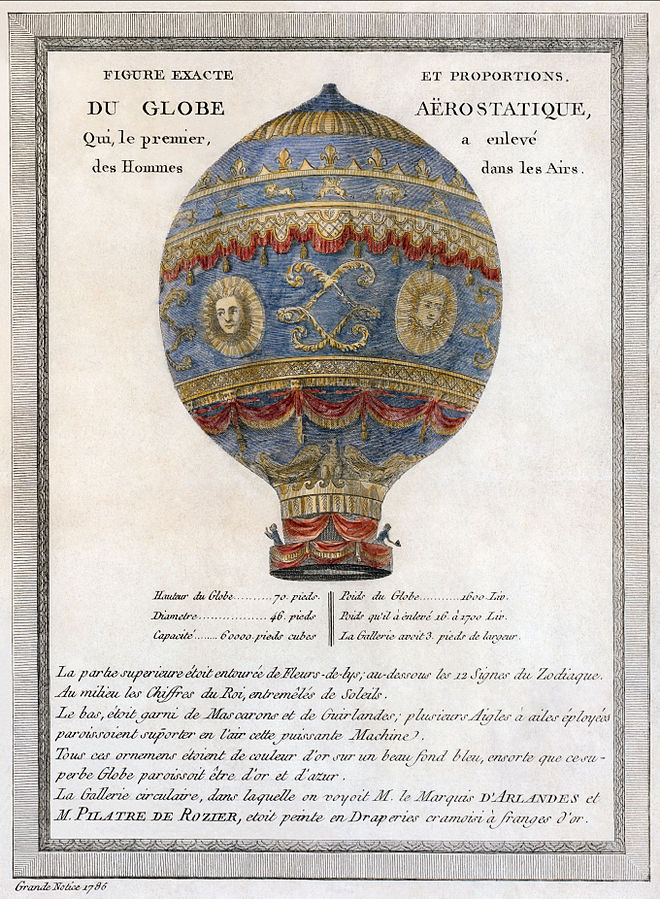 FIGURE EXACTE ET PROPORTIONS.
DU GLOBE AËROSTATIQUE,
Qui, le premier, a enlevé
des Hommes dans les Airs.
Hauteur du Globe..........70. pieds.
Diametre.................46. pieds
Capacité........60000. pieds cubes
Poids du Globe...........1600 Liv.
Poids qu'il à enlevé 16. à 1700 Liv.
La Gallerie avoit 3. pieds de largeur.
La partie superieure étoit entourée de Fleurs-de-lys; au-dessous les 12 Signes du Zodiaque.
Au milieu les Chiffres du Roi, entremêlés de Soleils.
Le bas, étoit garni de Mascarons et de Guirlandes; plusieurs Aigles à ailes éployées
paroissoient suporter en l'air cette puissante Machine.
Tous ces ornemens étoient de couleur d'or sur un beau fond bleu, ensorte que ce su-
perbe Globe paroissoit être d'or et d'azur.
La Gallerie circulaire, dans laquelle on voyoit M. le Marquis D'ARLANDES et
M. PILATRE DE ROZIER, etoit peinte en Draperies cramoisi à franges d'or.
Grande Notice 1786